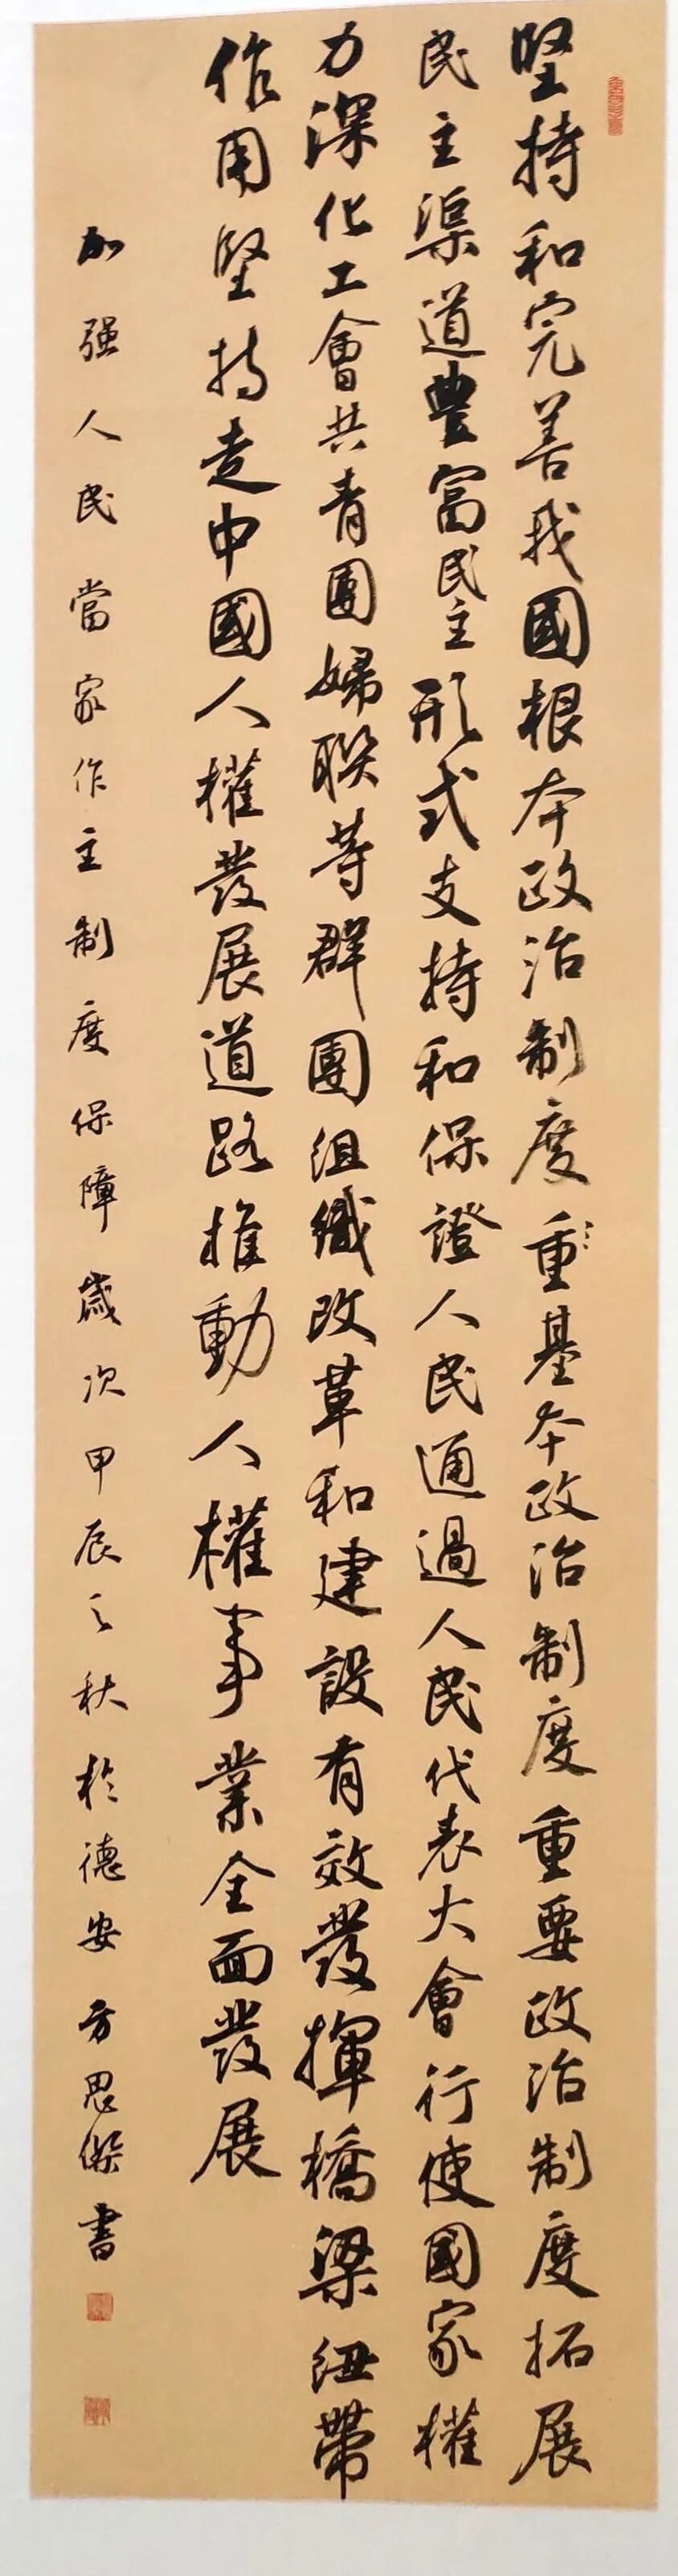 堅持和完善我國根本政治制度重基本政治制度重要政治制度拓展
民主渠道豊富民主形式支持和保證人民通過人民代表大會行使國家權
力深化工會共青團婦聯等群團組織改革和建設有效發揮橋梁紐帶
作用堅持走中國人權發展道路推動人權事業全面發展
加强人民當家作主制度保障歲次甲辰之秋於德安方思傑書